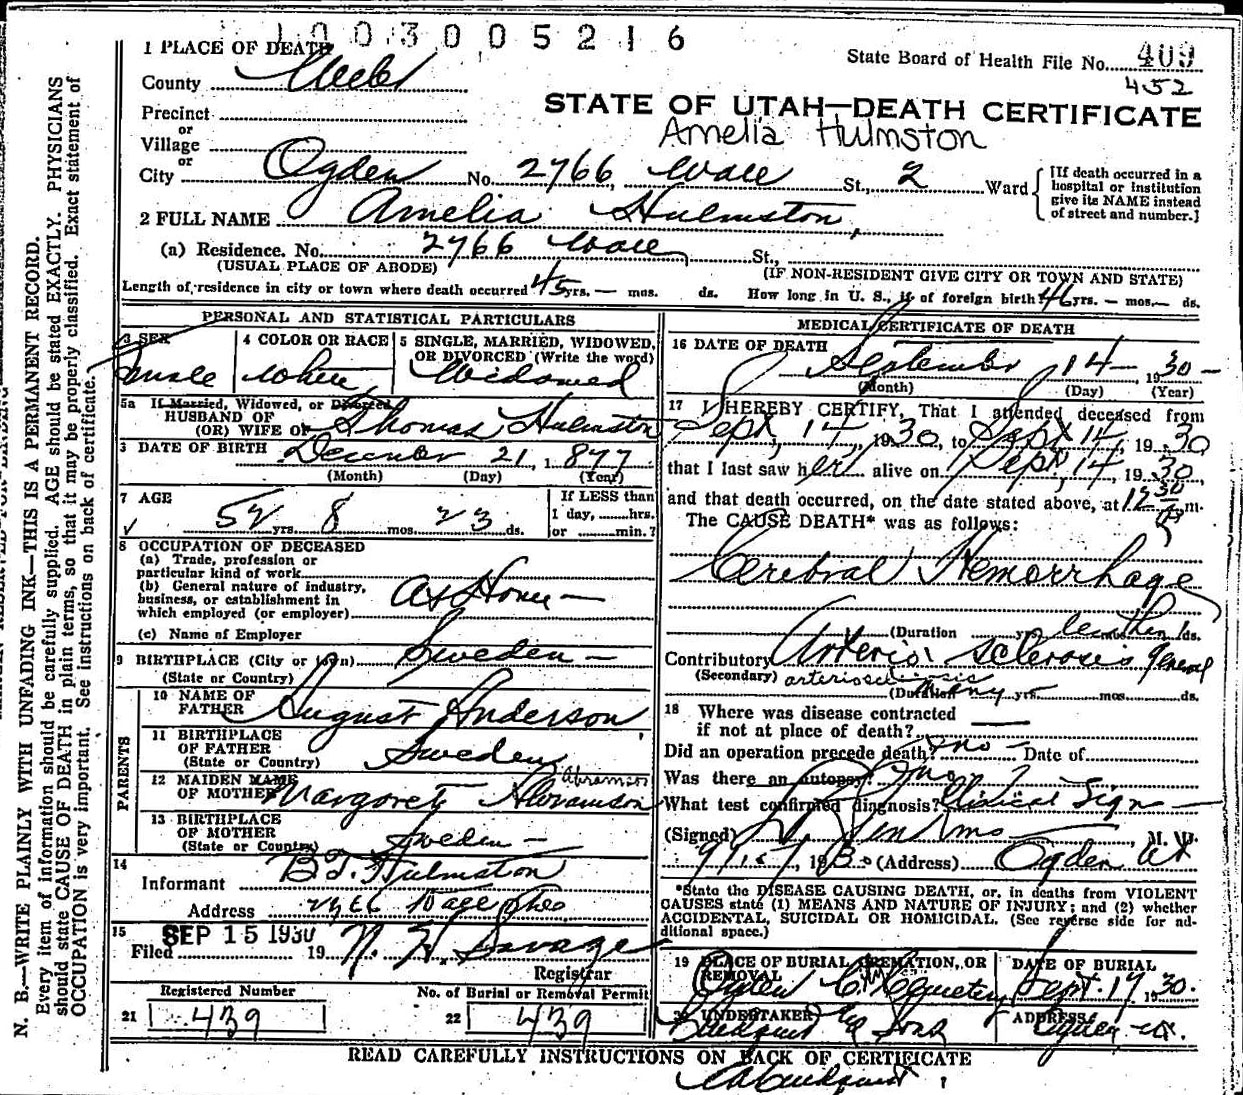 1003005216
1 PLACE OF DEATH
State Board of Health File No. 409
452
County Weber
STATE OF UTAH—DEATH CERTIFICATE
Precinct
or
Amelia Hulmston
Village
or
City Ogden No. 2766, Wall St., 2 Ward
[If death occurred in a hospital or institution give its NAME instead of street and number.]
2 FULL NAME Amelia Hulmston,
(a) Residence. No. 2766 Wall St.,
(USUAL PLACE OF ABODE) (IF NON-RESIDENT GIVE CITY OR TOWN AND STATE)
Length of residence in city or town where death occurred 45 yrs. — mos. ds. How long in U. S., if of foreign birth? 46 yrs. — mos. — ds.
PERSONAL AND STATISTICAL PARTICULARS
3 SEX
Female
4 COLOR OR RACE
White
5 SINGLE, MARRIED, WIDOWED, OR DIVORCED (Write the word)
Widowed
5a If Married, Widowed, or Divorced
HUSBAND OF
(OR) WIFE OF Thomas Hulmston
DATE OF BIRTH December 21, 1877
(Month) (Day) (Year)
7 AGE
52 yrs. 8 mos. 23 ds.
If LESS than
1 day, hrs.
or min.?
8 OCCUPATION OF DECEASED
(a) Trade, profession or
particular kind of work
(b) General nature of industry,
business, or establishment in
which employed (or employer)
At Home —
(c) Name of Employer
9 BIRTHPLACE (City or town) Sweden —
(State or Country)
PARENTS
10 NAME OF
FATHER August Anderson
11 BIRTHPLACE
OF FATHER Sweden
(State or Country)
12 MAIDEN NAME
OF MOTHER Margaret Abramson
13 BIRTHPLACE
OF MOTHER Sweden —
(State or Country)
14
Informant B.T. Hulmston
Address
15
Filed SEP 15 1930 19 N. H. Savage
Registrar
Registered Number
21 439
No. of Burial or Removal Permit
22 439
MEDICAL CERTIFICATE OF DEATH
16 DATE OF DEATH
September 14 — 1930 —
(Month) (Day) (Year)
17 I HEREBY CERTIFY, That I attended deceased from
Sept, 14, 1930, to Sept 14, 1930
that I last saw her alive on Sept, 14 1930,
and that death occurred, on the date stated above, at 12 30 m.
The CAUSE DEATH* was as follows:
Cerebral Hemorrhage
(Duration yrs. less than 1 ds.
Contributory Arterio sclerosis General
(Secondary) arteriosclerosis
(Duration many yrs. mos. ds.
18 Where was disease contracted
if not at place of death?
Did an operation precede death? no — Date of
Was there an autopsy? no
What test confirmed diagnosis? Clinical Sign —
(Signed) M. D.
1930 (Address) Ogden Ut
*State the DISEASE CAUSING DEATH, or, in deaths from VIOLENT
CAUSES state (1) MEANS AND NATURE OF INJURY; and (2) whether
ACCIDENTAL, SUICIDAL OR HOMICIDAL. (See reverse side for ad-
ditional space.)
19 PLACE OF BURIAL CREMATION, OR
REMOVAL
Ogden City Cemetery
DATE OF BURIAL
Sept. 17, 1930.
20 UNDERTAKER
& Sons
ADDRESS
Ogden Ut.
READ CAREFULLY INSTRUCTIONS ON BACK OF CERTIFICATE
N. B.—WRITE PLAINLY WITH UNFADING INK—THIS IS A PERMANENT RECORD.
Every item of information should be carefully supplied. AGE should be stated EXACTLY. PHYSICIANS
should state CAUSE OF DEATH in plain terms, so that it may be properly classified. Exact statement of
OCCUPATION is very important. See Instructions on back of certificate.